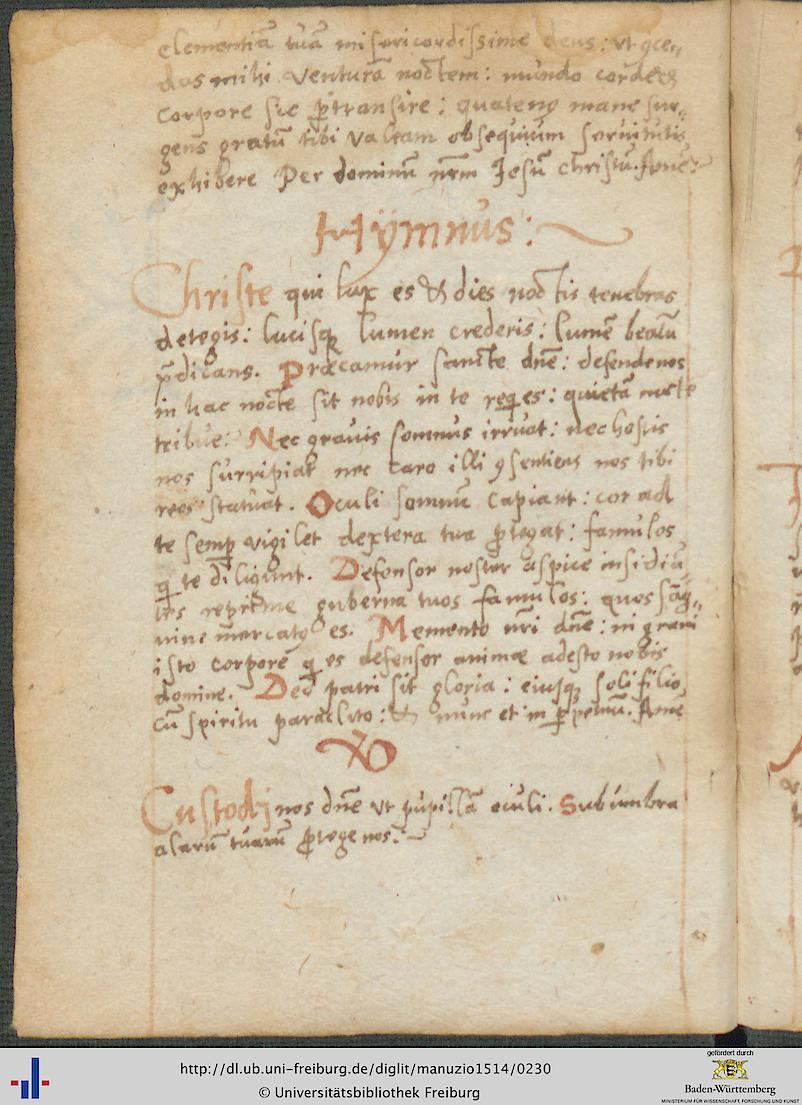 clementiā tuā misericordissime deus: vt ꝯce-
das mihi venturā noctem: mundo corde &
corpore sic ꝑtransire: quatenꝰ mane sur-
gens gratū tibi valeam obsequium seruitutis
exhibere Per dominū nr̄m Jesū christū. Amē:
Hÿmnus:
Christe qui lux es & dies noctis tenebras
detegis: lucisqꝫ lumen crederis: lumē beatū
p̄dicans. Præcamur sancte dn̄e: defende nos
in hac nocte sit nobis in te reqͥes: quietā nocte
tribue: Nec grauis somnus irruat: nec hostis
nos surripiat nec caro illi ꝯsentiens nos tibi
reos statuat. Oculi somnū capiant: cor ad
te semꝑ vigilet dextera tua ꝓtegat: famulos
qͥ te diligunt. Defensor noster aspice insidiā-
tes reprime guberna tuos famulos: quos sāg-
uine mercatꝰ es. Memento nr̄i dn̄e: in graui
isto corpore qͥ es defensor animæ adesto nobis
domine. Deo patri sit gloria: eiusqꝫ soli filio
cū spiritu paraclito: & nunc et in ꝑpetuū. Amē
Custodi nos dn̄e vt pupillā oculi. Sub umbra
alarū tuarū ꝓtege nos:
http://dl.ub.uni-freiburg.de/diglit/manuzio1514/0230
© Universitätsbibliothek Freiburg
gefördert durch
Baden-Württemberg
MINISTERIUM FÜR WISSENSCHAFT, FORSCHUNG UND KUNST